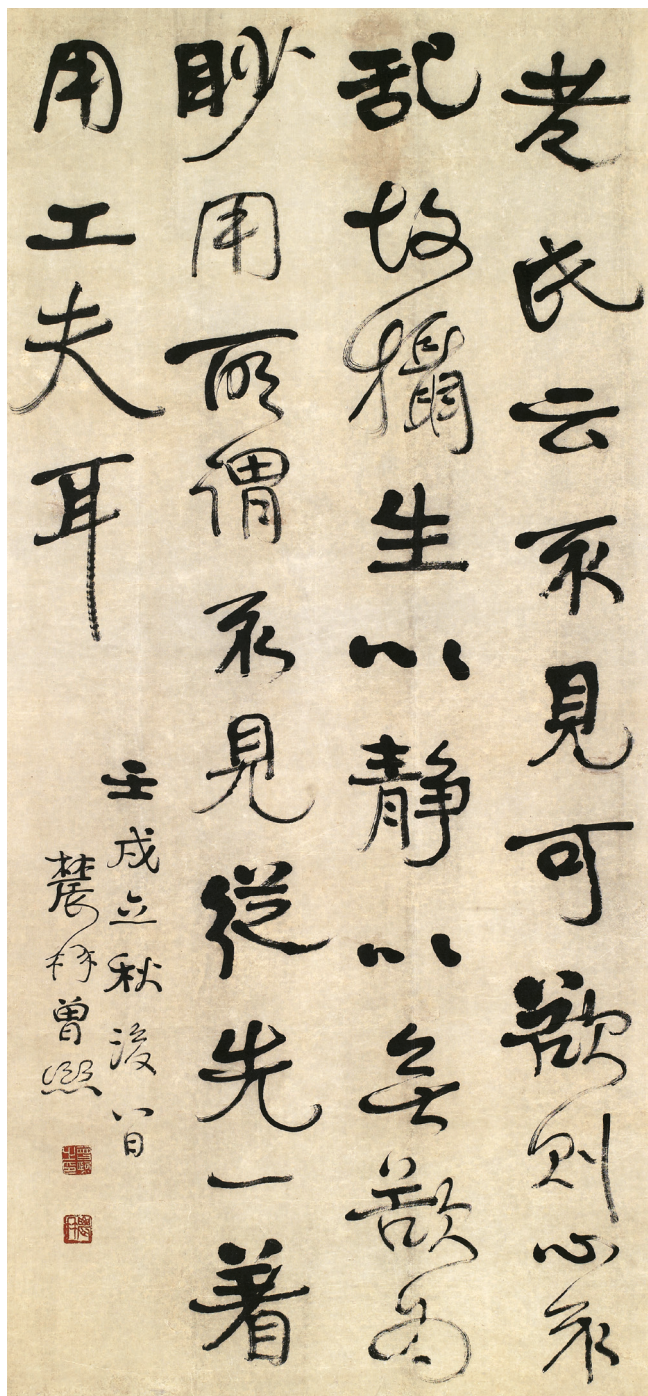 老氏云不見可欲則心不
乱故攝生以靜以無欲為
眇用所謂不見從先一着
用工夫耳
壬戌立秋後八日
農髯曾熙